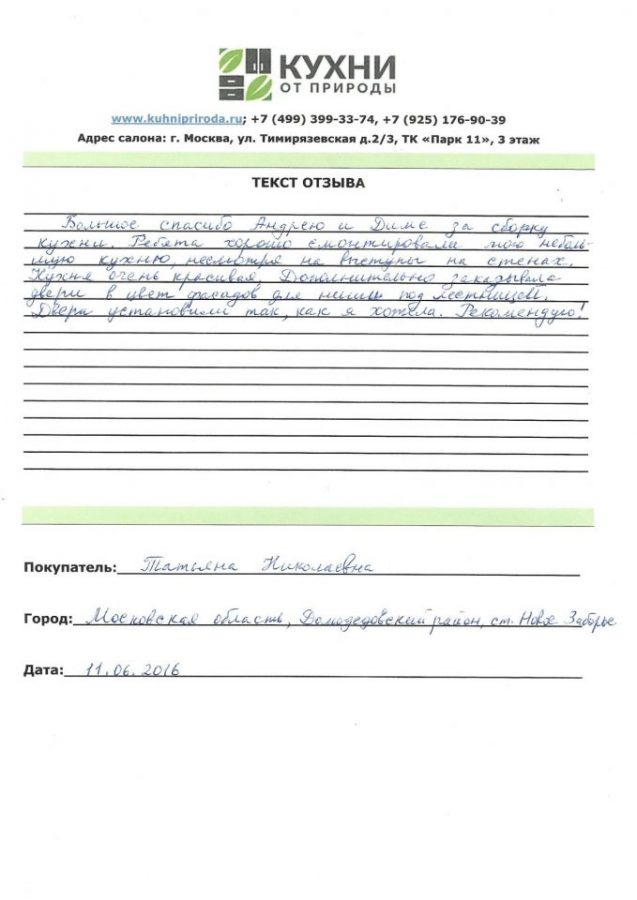 КУХНИ
ОТ ПРИРОДЫ
www.kuhnipriroda.ru; +7 (499) 399-33-74, +7 (925) 176-90-39
Адрес салона: г. Москва, ул. Тимирязевская д.2/3, ТК «Парк 11», 3 этаж
ТЕКСТ ОТЗЫВА
Большое спасибо Андрею и Диме за сборку
кухни. Ребята хорошо смонтировали мою неболь-
шую кухню, несмотря на выступы на стенах.
Кухня очень красивая. Дополнительно заказывала
двери в цвет фасадов для ниши под лестницей.
Двери установили так, как я хотела. Рекомендую!
Покупатель: Татьяна Николаевна
Город: Московская область, Домодедовский район, ст. Новое Заборье
Дата: 11.06.2016